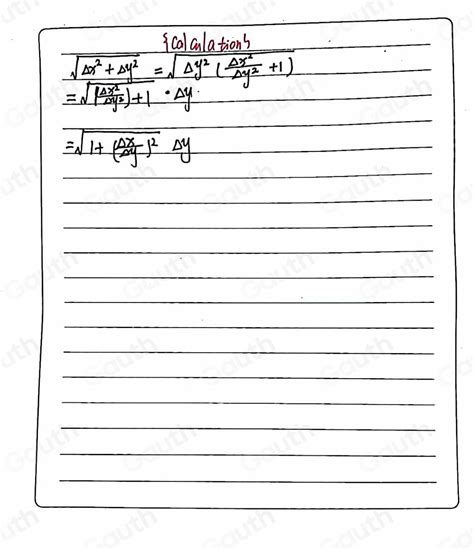 {Calculation}
√(Δx² + Δy²) = √(Δy² (Δx²/Δy² + 1))
= √((Δx²/Δy²) + 1) · Δy
= √(1 + (Δx/Δy)²) Δy
Gauth